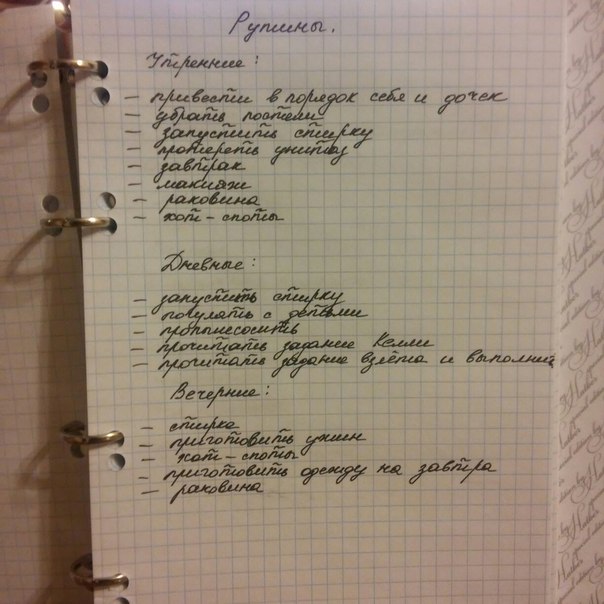 Рутины.
Утренние:
- привести в порядок себя и дочек
- убрать постели
- запустить стирку
- протереть унитаз
- завтрак
- макияж
- раковина
- хот-споты
Дневные:
- запустить стирку
- погулять с детьми
- пропылесосить
- прочитать задание Келли
- прочитать задание взлёта и выполнить
Вечерние:
- стирка
- приготовить ужин
- хот-споты
- приготовить одежду на завтра
- раковина